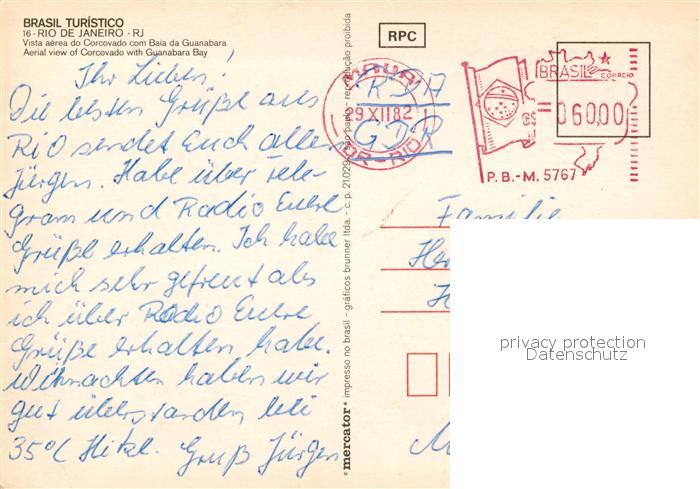 BRASIL TURÍSTICO
16 - RIO DE JANEIRO - RJ
Vista aérea do Corcovado com Baia da Guanabara
Aerial view of Corcovado with Guanabara Bay
Ihr Lieben!
Die besten Grüße aus
Rio sendet Euch allen
Jürgen. Habe über Tele-
gram und Radio Euere
Grüße erhalten. Ich habe
mich sehr gefreut als
ich über Radio Euere
Grüße erhalten habe.
Wihnachten haben wir
gut überstanden bei
35°C Hitze. Gruß Jürgen
mercator
impresso no brasil - gráficos brunner ltda. - c. p. 21.029 - são paulo - reprodução proibida
RPC
MAUÁ
29 XII 82
DR - RIO
DDR
GDR
BRASIL
CORREIO
06000
P.B.-M. 5767
Familie
privacy protection
Datenschutz